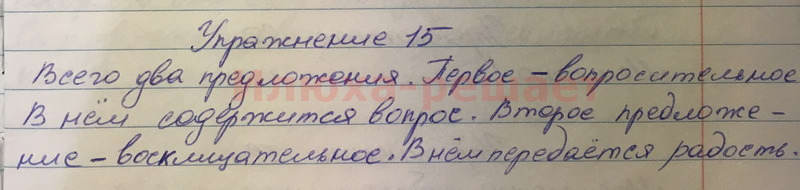 Упражнение 15
Всего два предложения. Первое – вопросительное
В нём содержится вопрос. Второе предложе-
ние – восклицательное. В нём передаётся радость.
Илюха-решает